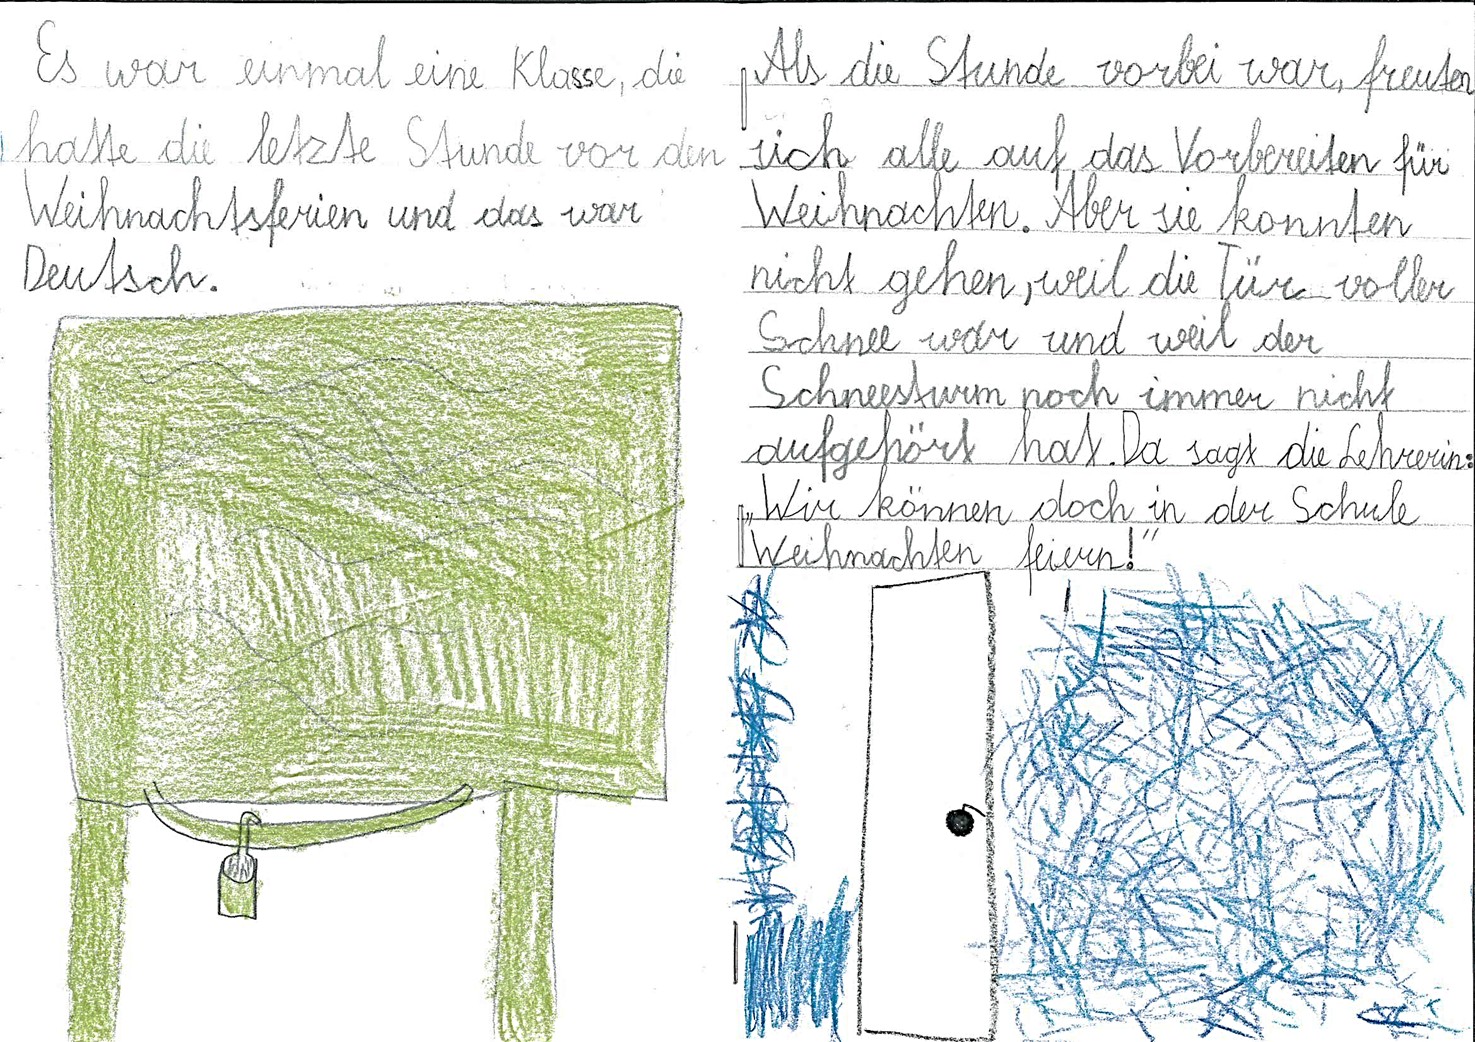 Es war einmal eine Klasse, die
hatte die letzte Stunde vor den
Weihnachtsferien und das war
Deutsch.
Als die Stunde vorbei war, freuten
sich alle auf das Vorbereiten für
Weihnachten. Aber sie konnten
nicht gehen, weil die Tür voller
Schnee war und weil der
Schneesturm noch immer nicht
aufgehört hat. Da sagt die Lehrerin:
„Wir können doch in der Schule
Weihnachten feiern!“